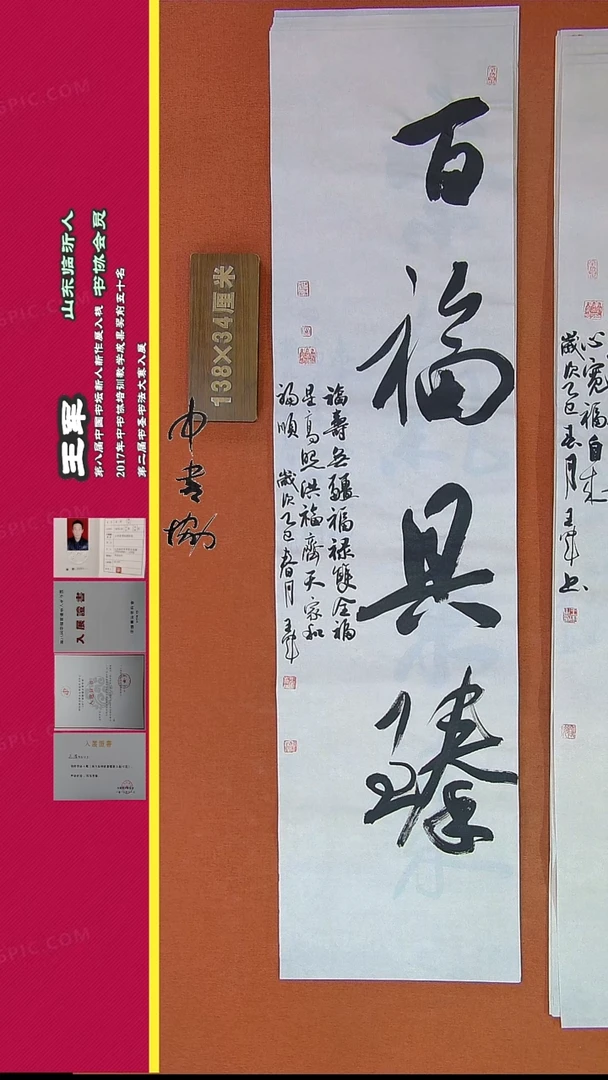 百福具臻
福壽無疆福祿雙全福
星高照洪福齊天家和
福順 歲次乙巳春月 王軍
心寬福自来
歲次乙巳春月 王軍书
138×34厘米
中书协
山东临沂人
王军 书协会员
第八届中国书坛新人新作展入展
2017年中书协培训教学成果奖前五十名
第二届书圣书法大赛入展
入展證書